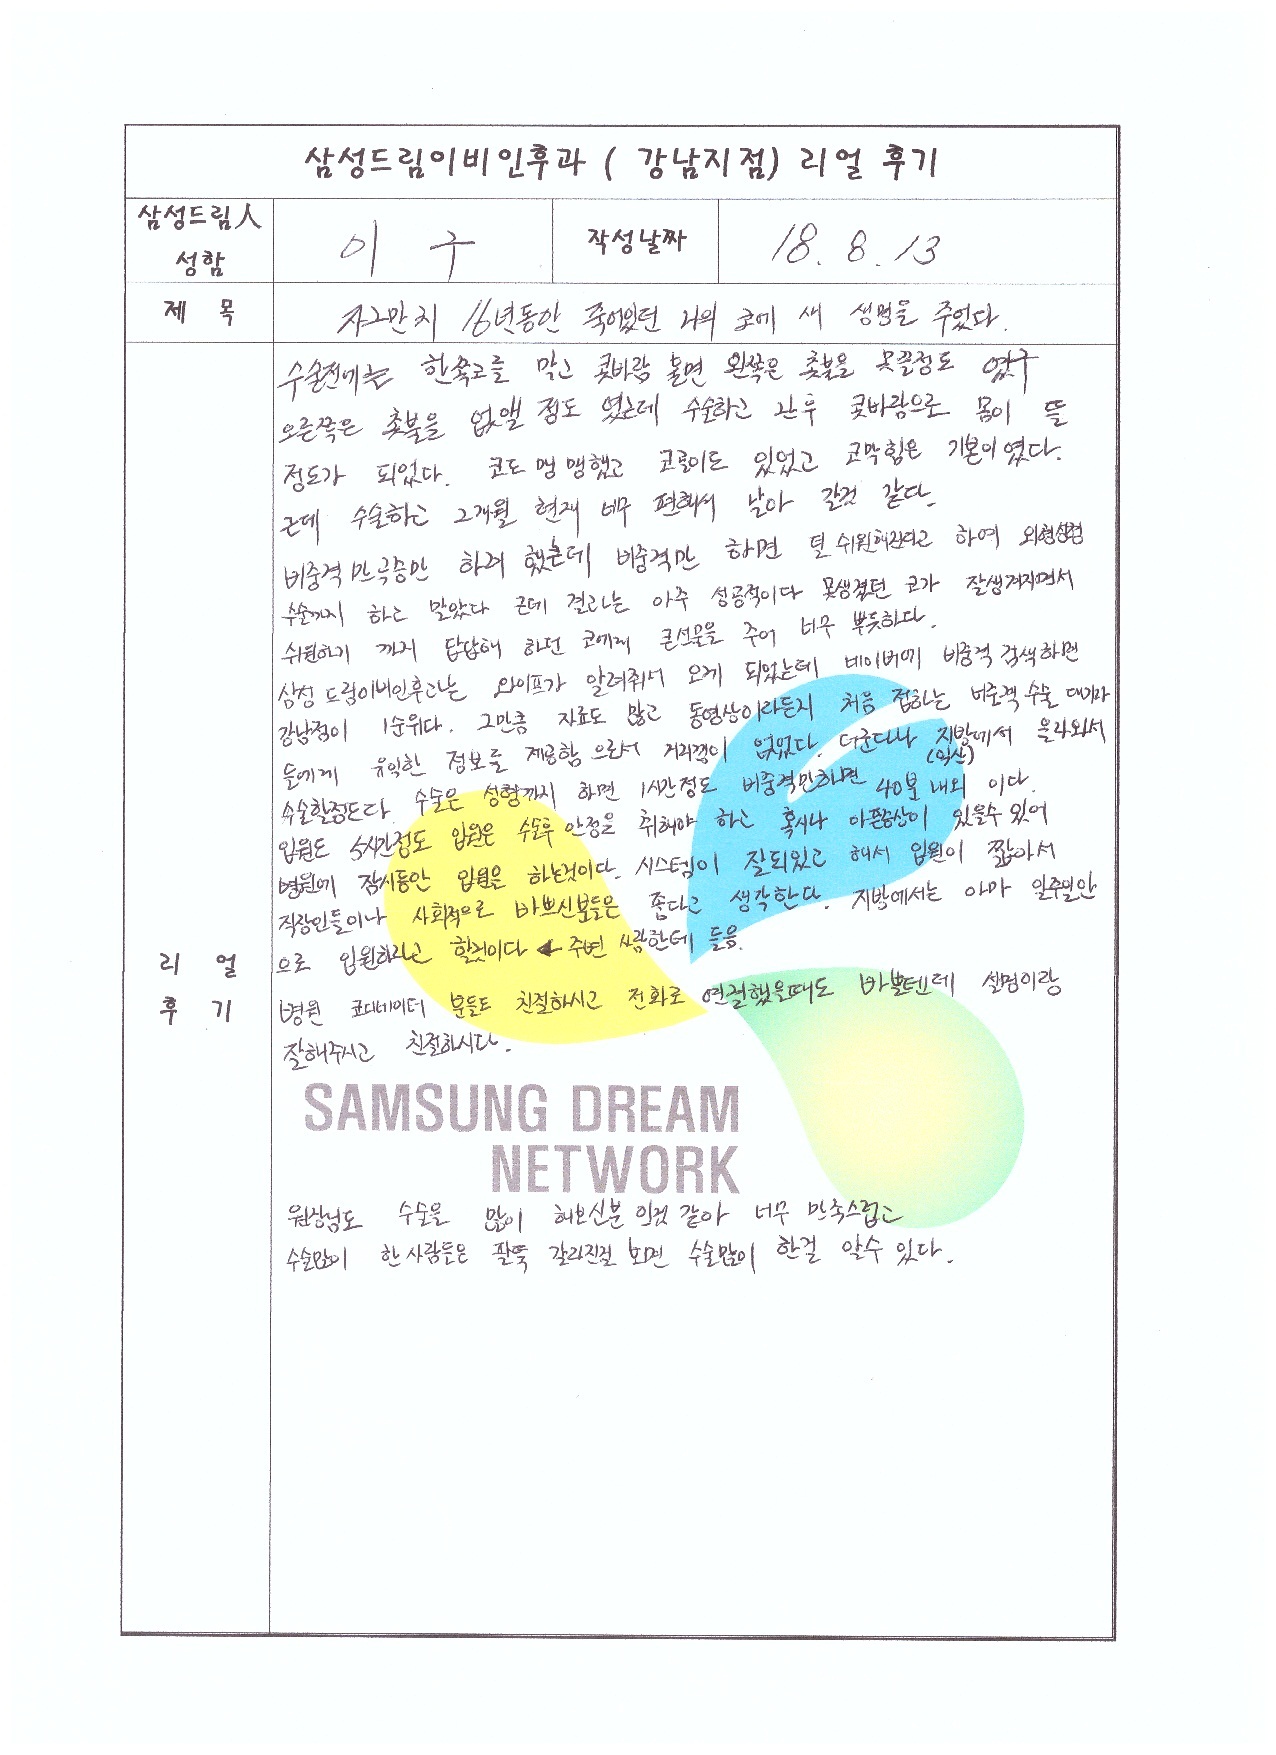 삼성드림이비인후과 ( 강남지점) 리얼 후기
삼성드림人 성함
이 구
작성날짜
18. 8. 13
제 목
자그만치 16년동안 죽어있던 나의 코에 새 생명을 주었다.
리 얼 후 기
수술전에는 한쪽코를 막고 콧바람 불면 왼쪽은 촛불을 못끌정도 였구
오른쪽은 촛불을 없앨 정도 였는데 수술하고 난후 콧바람으로 몸이 뜰
정도가 되었다. 코도 맹맹했고 코골이도 있었고 코막힘은 기본이였다.
근데 수술하고 2개월 현재 너무 편해서 날아 갈것 같다.
비중격만곡증만 하려 했는데 비중격만 하면 덜 쉬원해진다고 하여 외형성형
수술까지 하고 말았다 근데 결과는 아주 성공적이다 못생겼던 코가 잘생겨지면서
쉬원하기 까지 답답해 하던 코에게 큰선물을 주어 너무 뿌듯하다.
삼성 드림이비인후과는 와이프가 알려줘서 오게 되었는데 네이버에 비중격 검색하면
강남점이 1순위다. 그만큼 자료도 많고 동영상이라든지 처음 접하는 비중격 수술 대기자
들에게 유익한 정보를 제공함 으로서 거리낌이 없었다. 더군다나 지방에서 올라와서
(익산)
수술할정도다. 수술은 성형까지 하면 1시간정도 비중격만하면 40분 내외 이다.
입원도 5시간정도 입원은 수술후 안정을 취해야 하고 혹시나 아픈증상이 있을수 있어
병원에 잠시동안 입원을 하는것이다. 시스템이 잘되있고 해서 입원이 짧아서
직장인들이나 사회적으로 바쁘신분들은 좋다고 생각한다. 지방에서는 아마 일주일안
으로 입원하라고 할것이다 ← 주변 사람한테 들음.
병원 코디네이터 분들도 친절하시고 전화로 연결했을때도 바쁠텐데 설명이랑
잘해주시고 친절하시다.
SAMSUNG DREAM
NETWORK
원장님도 수술을 많이 해보신분 인것 같아 너무 만족스럽고
수술많이 한 사람들은 팔뚝 갈라진걸 보면 수술많이 한걸 알수 있다.